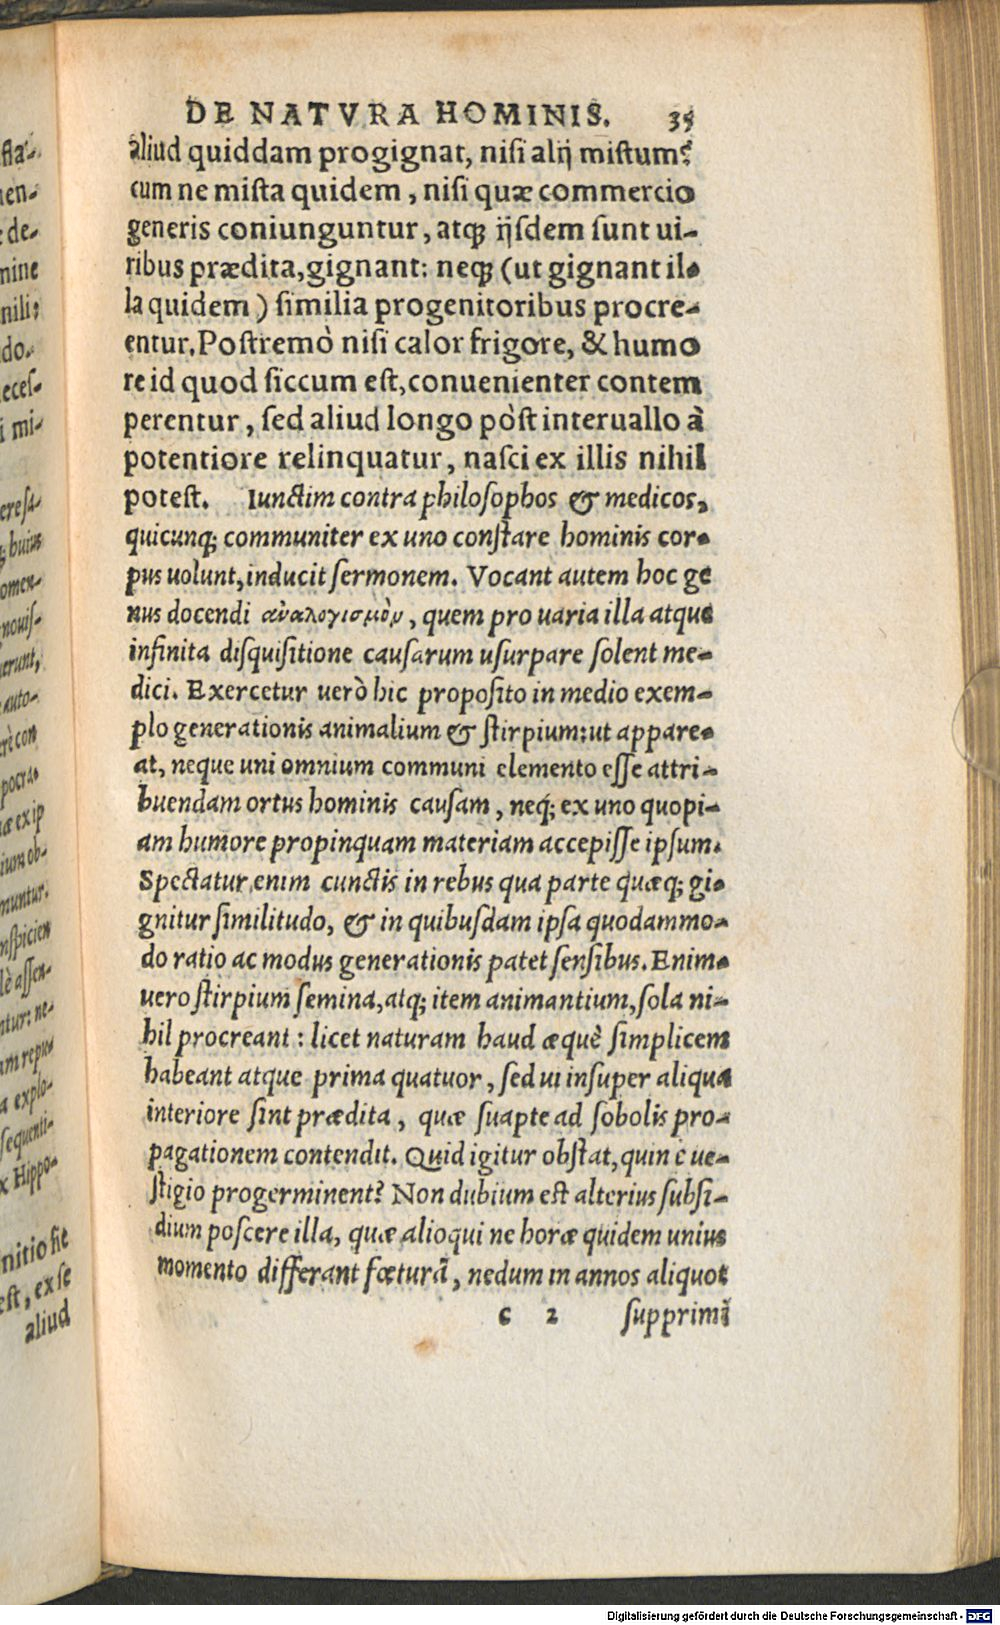 DE NATVRA HOMINIS. 35
aliud quiddam progignat, nisi alij mistum?
cum ne mista quidem, nisi quæ commercio
generis coniunguntur, atq; ijsdem sunt ui-
ribus prædita, gignant: neq; (ut gignant il-
la quidem) similia progenitoribus procre-
entur. Postremò nisi calor frigore, & humo
re id quod siccum est, conuenienter contem
perentur, sed aliud longo pòst interuallo à
potentiore relinquatur, nasci ex illis nihil
potest. Iunctim contra philosophos & medicos,
quicunq; communiter ex uno constare hominis cor-
pus uolunt, inducit sermonem. Vocant autem hoc ge
nus docendi ἀναλογισμὸν, quem pro uaria illa atque
infinita disquisitione causarum usurpare solent me-
dici. Exercetur uerò hic proposito in medio exem-
plo generationis animalium & stirpium: ut appare-
at, neque uni omnium communi elemento esse attri-
buendam ortus hominis causam, neq; ex uno quopi-
am humore propinquam materiam accepisse ipsum.
Spectatur enim cunctis in rebus qua parte quæq; gi-
gnitur similitudo, & in quibusdam ipsa quodammo-
do ratio ac modus generationis patet sensibus. Enim-
uero stirpium semina, atq; item animantium, sola ni-
hil procreant: licet naturam haud æquè simplicem
habeant atque prima quatuor, sed ui insuper aliqua
interiore sint prædita, quæ suapte ad sobolis pro-
pagationem contendit. Quid igitur obstat, quin è ue-
stigio progerminent? Non dubium est alterius subsi-
dium poscere illa, quæ alioqui ne horæ quidem unius
momento differant fœturã, nedum in annos aliquot
c 2 supprimĩ
fla-
en-
de-
mine
nili:
do-
eces-
mi-
buius
omen-
nouis-
erunt,
auto-
rè con
pocra-
æ ex ip
ium ob-
muntur.
nspicien
lè assen-
ntur: ne-
am repu
a explo-
sequenti-
x Hippo-
nitio fie
est, ex se
aliud
Digitalisierung gefördert durch die Deutsche Forschungsgemeinschaft - DFG